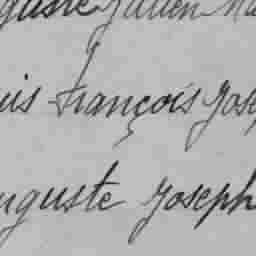 guste Julien Ma
uis François Jose
uguste Joseph